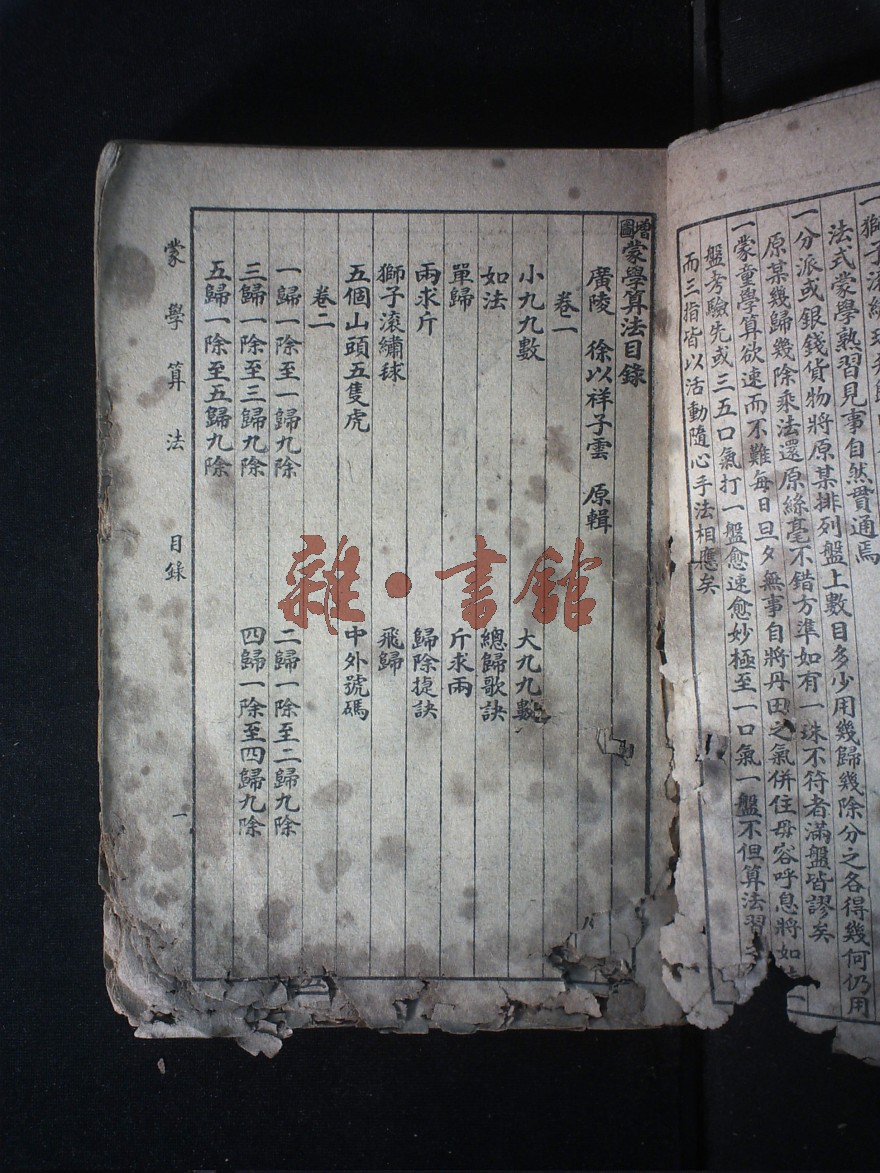 法式蒙學熟習見事自然貫通焉
一分派或銀錢貨物將原某排列盤上數目多少用幾歸幾除分之各得幾何仍用
原某幾歸幾除乘法還原絲毫不錯方準如有一珠不符者滿盤皆謬矣
一蒙童學算欲速而不難每日旦夕無事自將丹田之氣併住毋容呼息將如
盤考驗先或三五口氣打一盤愈速愈妙極至一口氣一盤不但算法習
而三指皆以活動隨心手法相應矣
增圖蒙學算法目錄
廣陵 徐以祥子雲 原輯
卷一
小九九數 大九九數
如法 總歸歌訣
單歸 斤求兩
兩求斤 歸除捷訣
獅子滾繡毬 飛歸
五個山頭五隻虎 中外號碼
卷二
一歸一除至一歸九除 二歸一除至二歸九除
三歸一除至三歸九除 四歸一除至四歸九除
五歸一除至五歸九除
蒙學算法 目錄 一
雜·書館